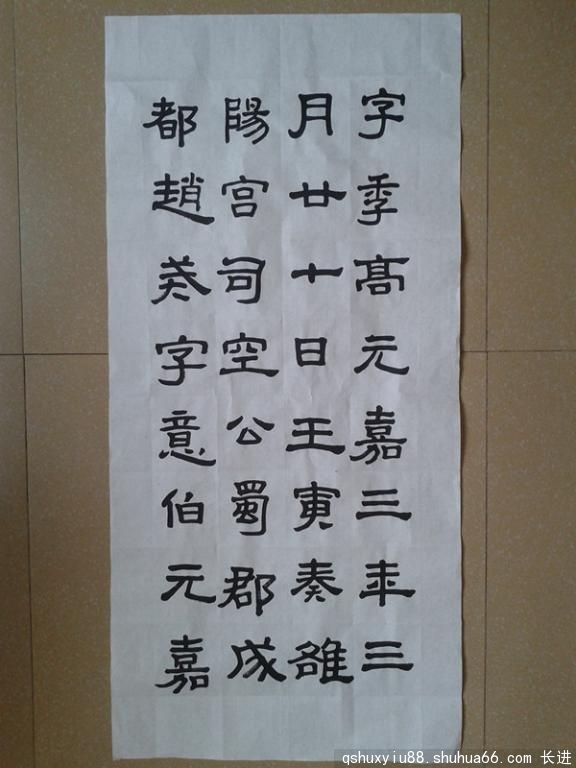 字季高元嘉三年三
月廿七日壬寅奏雒
陽宫司空公蜀郡成
都趙戒字意伯元嘉
qshuxyiu88.shuhua66.com 长进